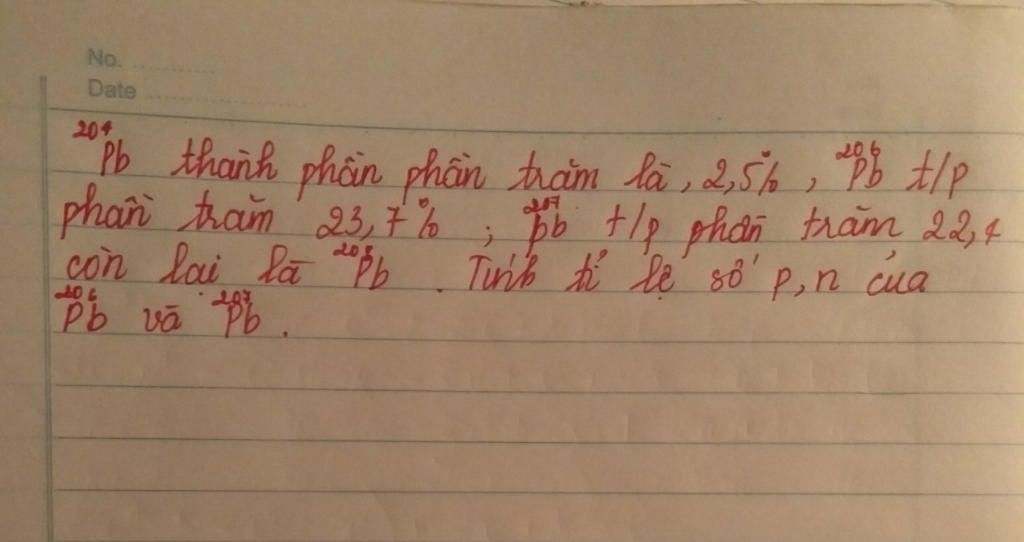 No. ............
Date .......................
²⁰⁴Pb thành phần phần trăm là, 2,5%, ²⁰⁶Pb t/p
phần trăm 23,7% ; ²⁰⁷Pb t/p phần trăm 22,4
còn lại là ²⁰⁸Pb. Tính tỉ lệ số p, n của
²⁰⁶Pb và ²⁰⁷Pb.